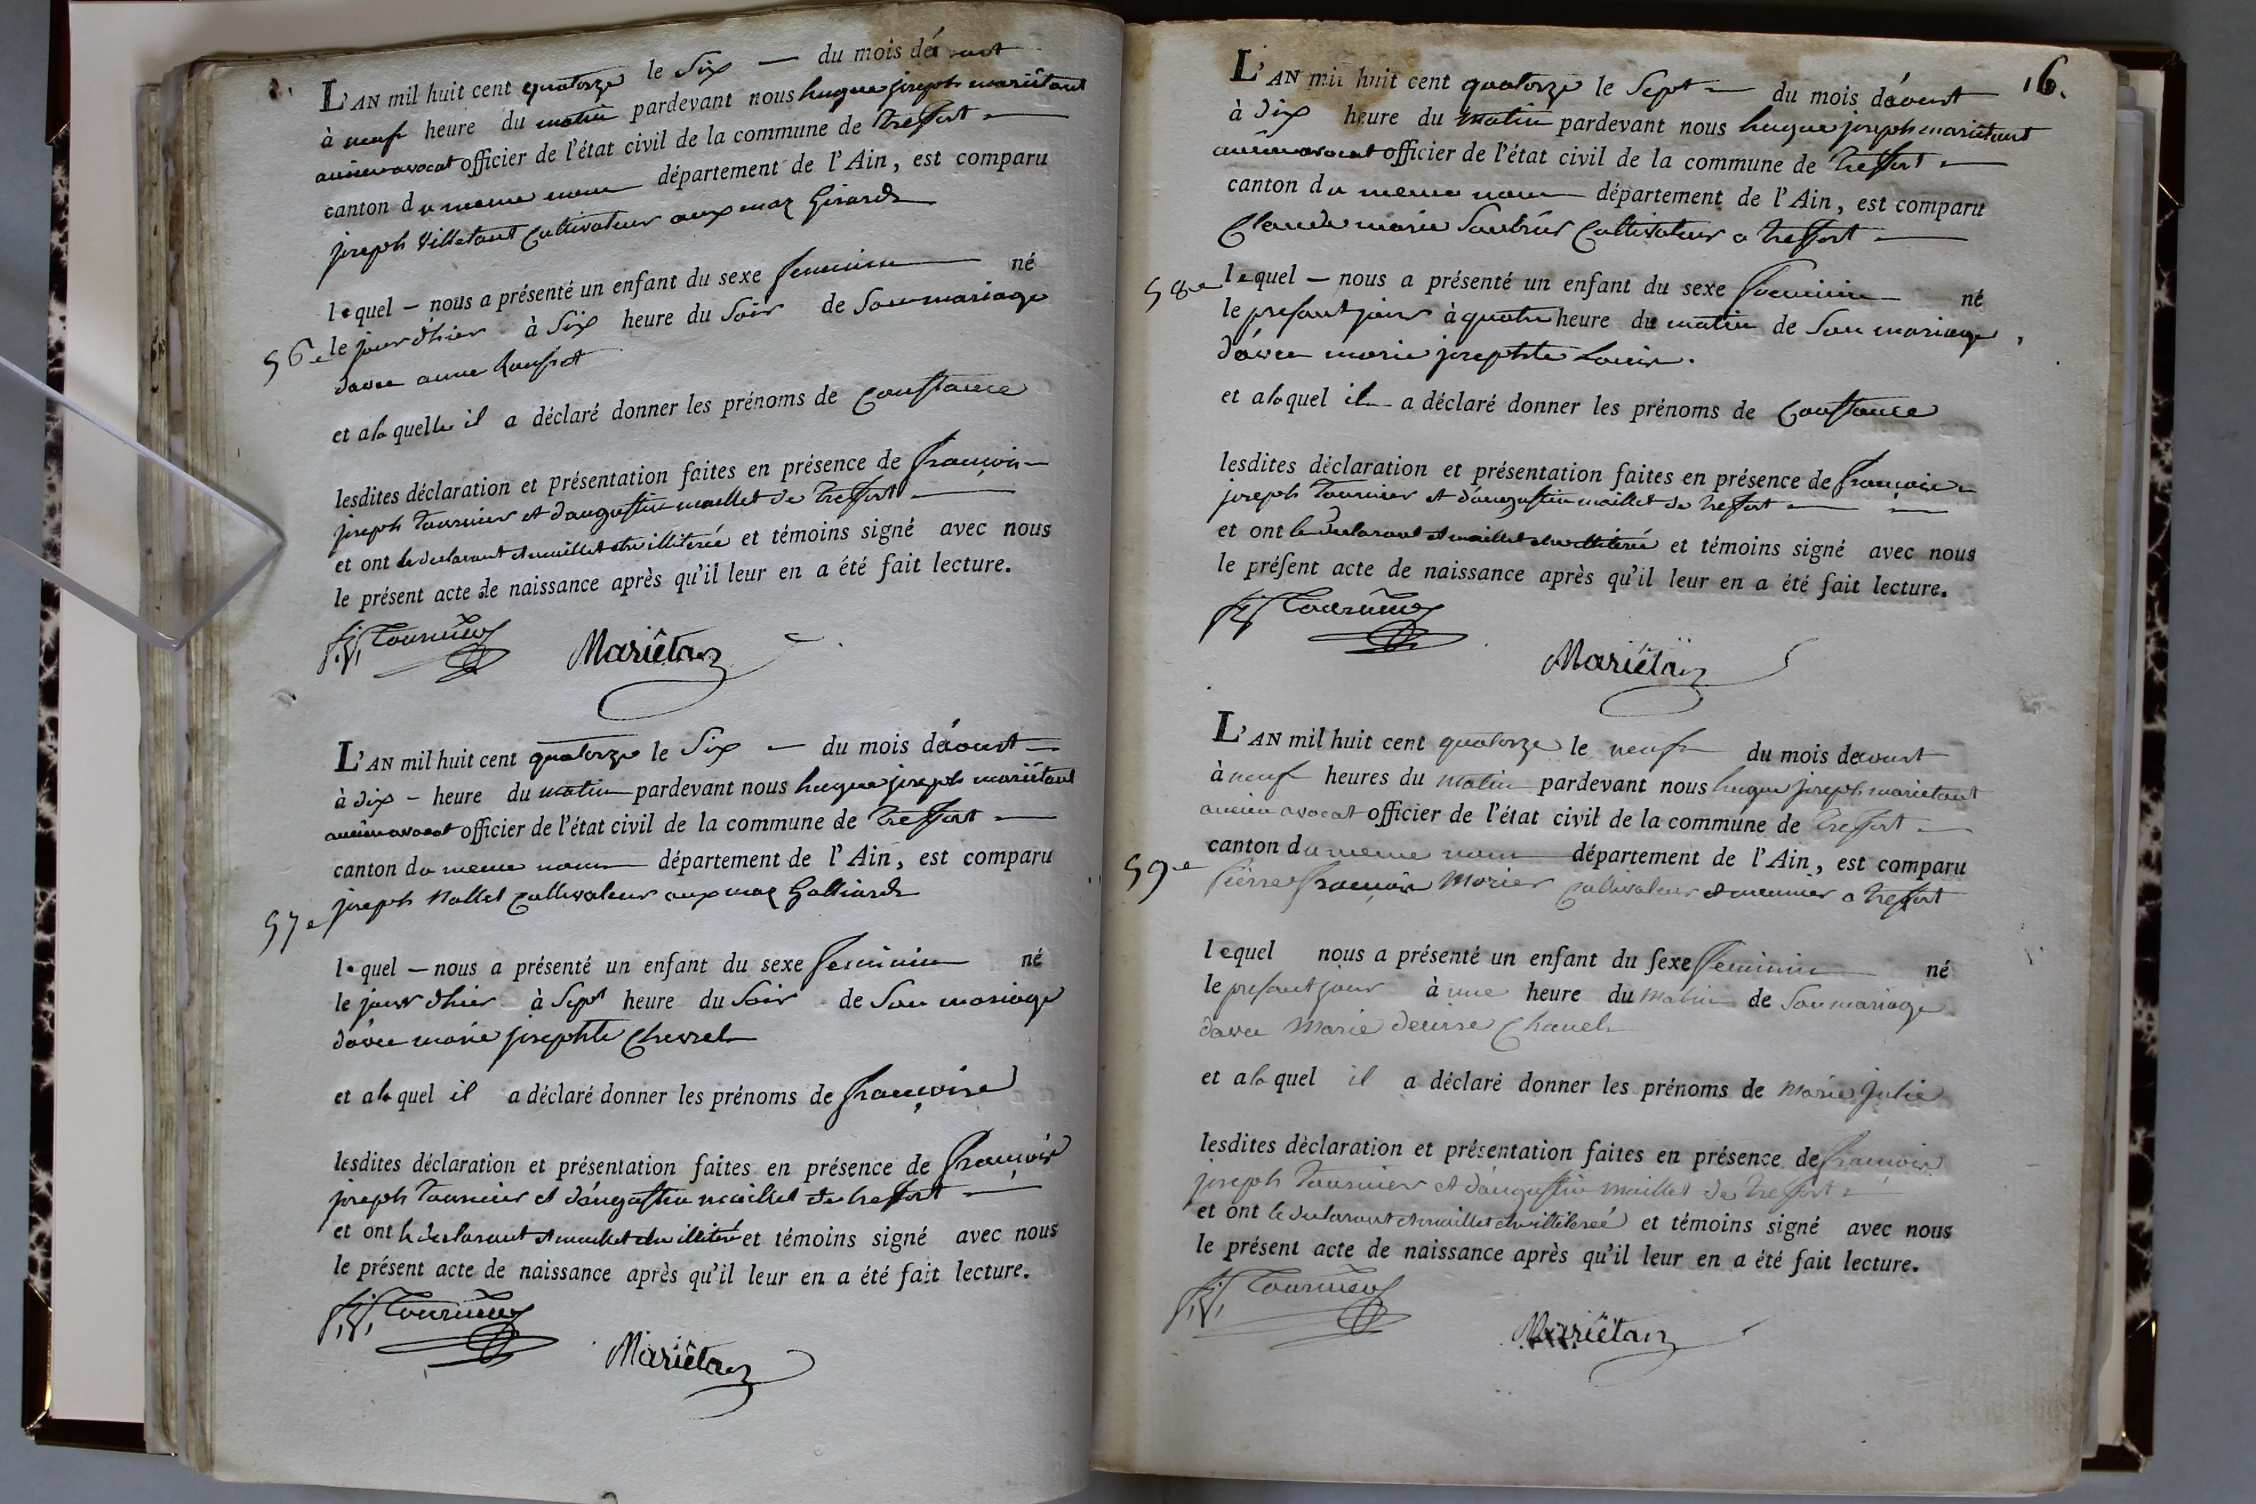 L'AN mil huit cent quatorze le Six — du mois d'aoust
à neuf heure du matin pardevant nous hugue joseph mariétant
ancien avocat officier de l'état civil de la commune de treffort —
canton du meme nom — département de l'Ain, est comparu
joseph Villetant Cultivateur aux maz Girards
lequel — nous a présenté un enfant du sexe feminin — né
56e le jour d'hier à Six heure du Soir de Son mariage
davec anne
et a la quelle il a déclaré donner les prénoms de Constance
lesdites déclaration et présentation faites en présence de françois
joseph Tournier et d'augustin maillet de treffort —
et ont le declarant et maillet illiteré et témoins signé avec nous
le présent acte de naissance après qu'il leur en a été fait lecture.
f. j. Tournier
Mariétan
L'AN mil huit cent quatorze le Six — du mois d'aoust —
à dix — heure du matin pardevant nous hugue joseph mariétant
ancien avocat officier de l'état civil de la commune de treffort —
canton du meme nom — département de l'Ain, est comparu
57e joseph Nallet Cultivateur aux maz Galliards
lequel — nous a présenté un enfant du sexe feminin — né
le jour d'hier à Sept heure du Soir de Son mariage
d'avec marie josephte Chevrel
et a la quel il a déclaré donner les prénoms de françoise
lesdites déclaration et présentation faites en présence de françois
joseph Tournier et d'augustin maillet de treffort —
et ont le declarant et maillet illiteré et témoins signé avec nous
le présent acte de naissance après qu'il leur en a été fait lecture.
f. j. Tournier
Mariétan
16.
L'AN mil huit cent quatorze le Sept — du mois d'aoust
à dix heure du matin pardevant nous hugue joseph mariétant
ancien avocat officier de l'état civil de la commune de treffort —
canton du meme nom — département de l'Ain, est comparu
Claude marie Cultivateur a treffort —
58e lequel — nous a présenté un enfant du sexe foeminin — né
le present jour à quatre heure du matin de Son mariage
d'avec marie josephte Louis.
et a la quel il — a déclaré donner les prénoms de Constance
lesdites déclaration et présentation faites en présence de françois
joseph Tournier et d'augustin maillet de treffort —
et ont le declarant et maillet illiteré et témoins signé avec nous
le présent acte de naissance après qu'il leur en a été fait lecture.
f. j. Tournier
Mariétan
L'AN mil huit cent quatorze le neuf — du mois d'aoust
à neuf heures du matin pardevant nous hugue joseph mariétant
ancien avocat officier de l'état civil de la commune de treffort —
canton du meme nom — département de l'Ain, est comparu
59e Pierre françois Morier Cultivateur et meunier a treffort
lequel nous a présenté un enfant du sexe feminin — né
le present jour à une heure du matin de Son mariage
davec Marie denise Chanel
et a la quel il a déclaré donner les prénoms de Marie Julie
lesdites déclaration et présentation faites en présence de françois
joseph Tournier et d'augustin maillet de treffort —
et ont le declarant et maillet illiteré et témoins signé avec nous
le présent acte de naissance après qu'il leur en a été fait lecture.
f. j. Tournier
Mariétan